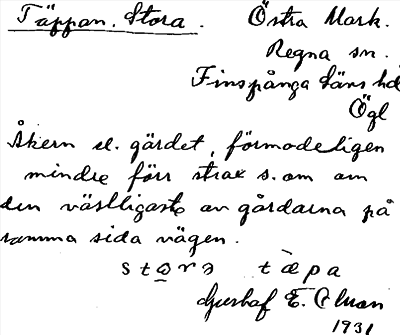 Täppan, Stora. Östra Mark.
Regna sn.
Finspånga läns hd
Ögl
Åkern el. gärdet, förmodeligen
mindre förr strax s. om om
den västligaste av gårdarna på
samma sida vägen.
stọrɘ tæ̀pa
Gustaf E. Alman
1931